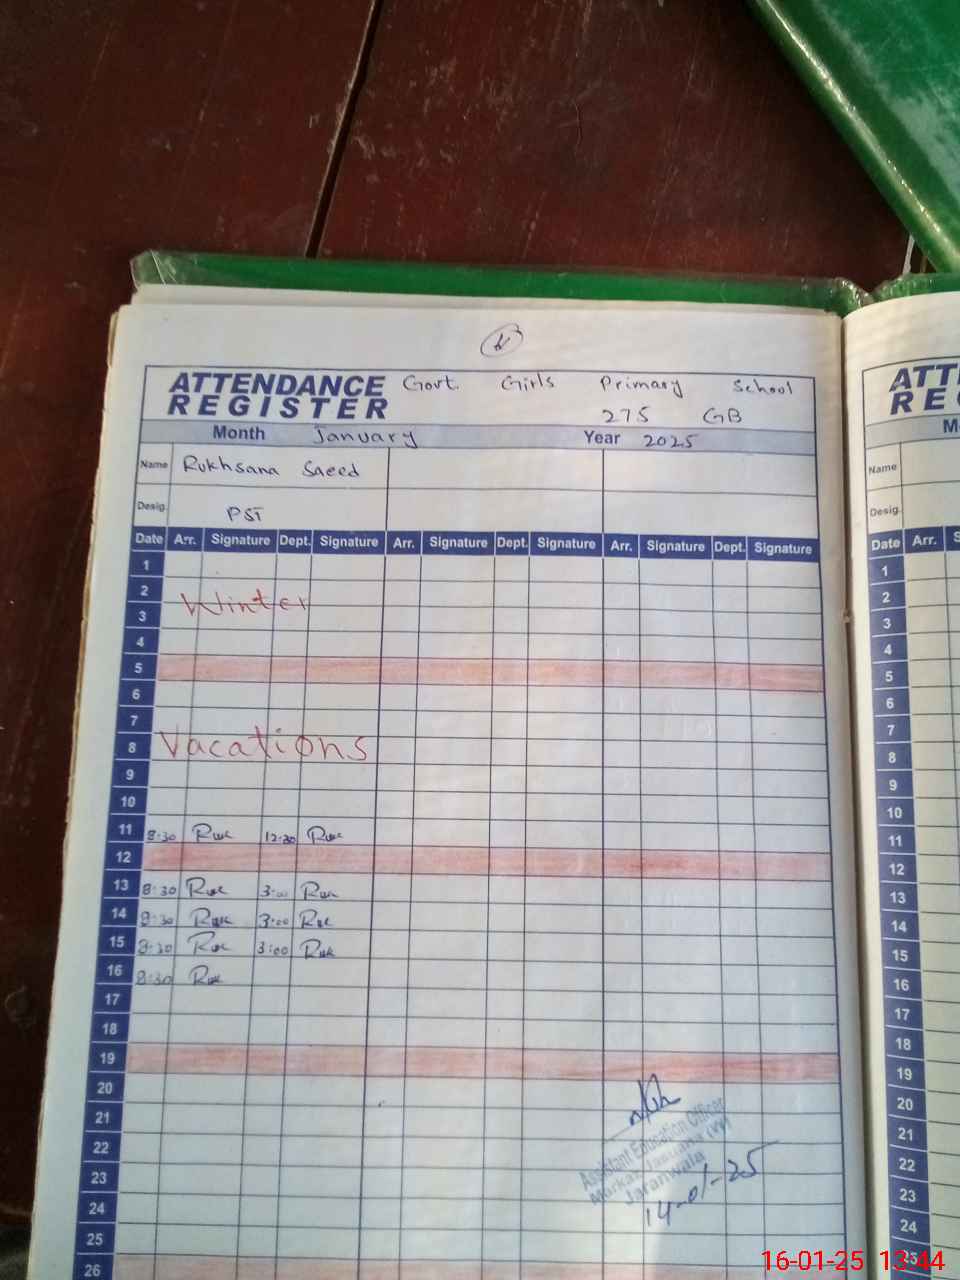 ATTENDANCE REGISTER Govt. Girls Primary School
275 GB
Month January Year 2025
Name Rukhsana Saeed
Desig. PST
Date Arr. Signature Dept. Signature Arr. Signature Dept. Signature Arr. Signature Dept. Signature
1
2 Winter
3
4
5
6
7
8 Vacations
9
10
11 8:30 Ruk 12:30 Ruk
12
13 8:30 Ruk 3:00 Ruk
14 8:30 Ruk 3:00 Ruk
15 8:30 Ruk 3:00 Ruk
16 8:30 Ruk
17
18
19
20
21
22
23
24
25
26
Assistant Education Officer
Markaz (W)
Jaranwala
14-01-25
ATT
RE
M
Name
Desig.
Date Arr. S
1
2
3
4
5
6
7
8
9
10
11
12
13
14
15
16
17
18
19
20
21
22
23
24
25
16-01-25 13:44